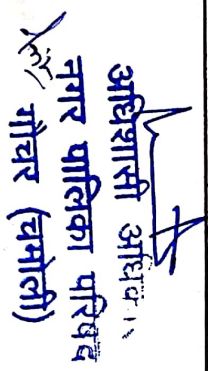 अधिशासी अधिका
नगर पालिका परिषद
गौचर (चमोली)